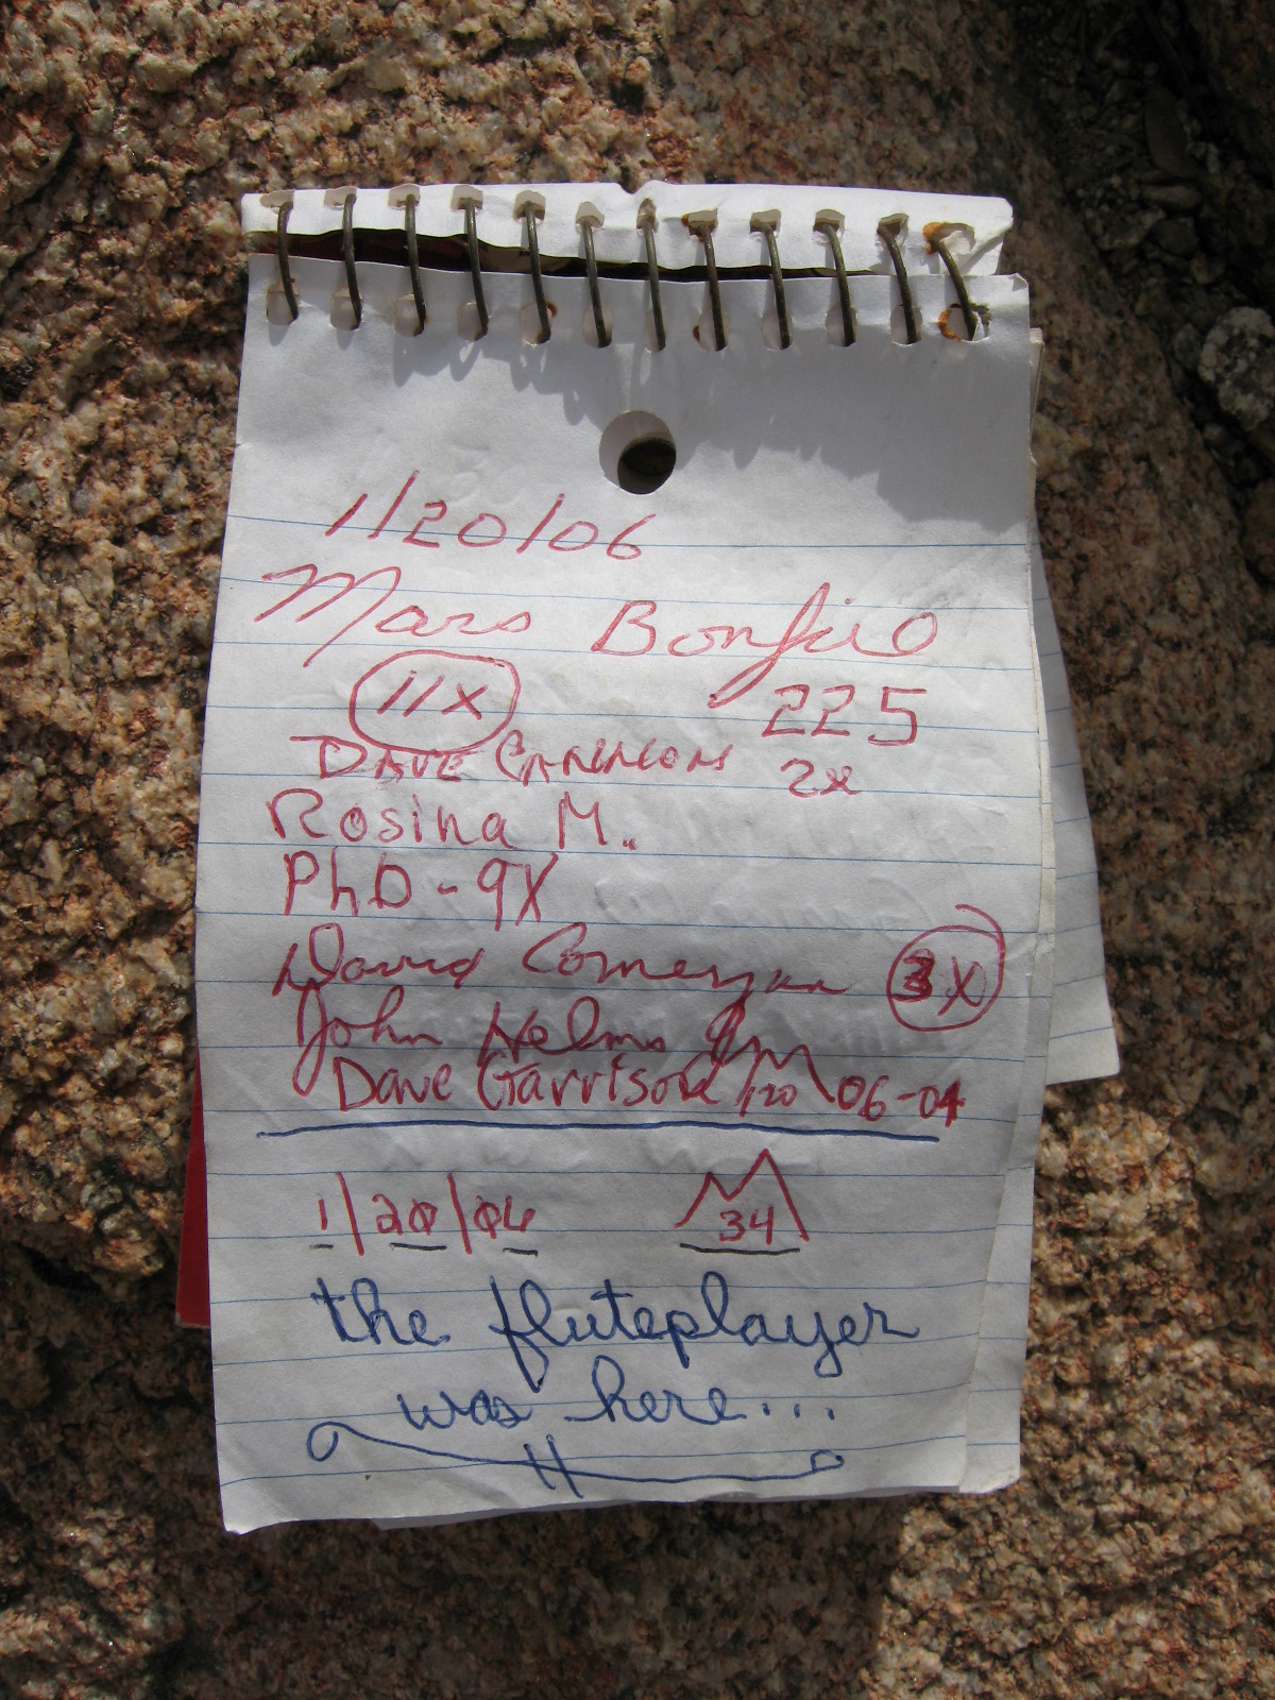 1/20/06
Mars Bonfire
11x 225
DAVE CANNON 2x
Rosina M.
PhD - 9X
David Comerzan 3X
John Helms
Dave Garrison 120 06-04
1/20/06 34
the fluteplayer
was here...